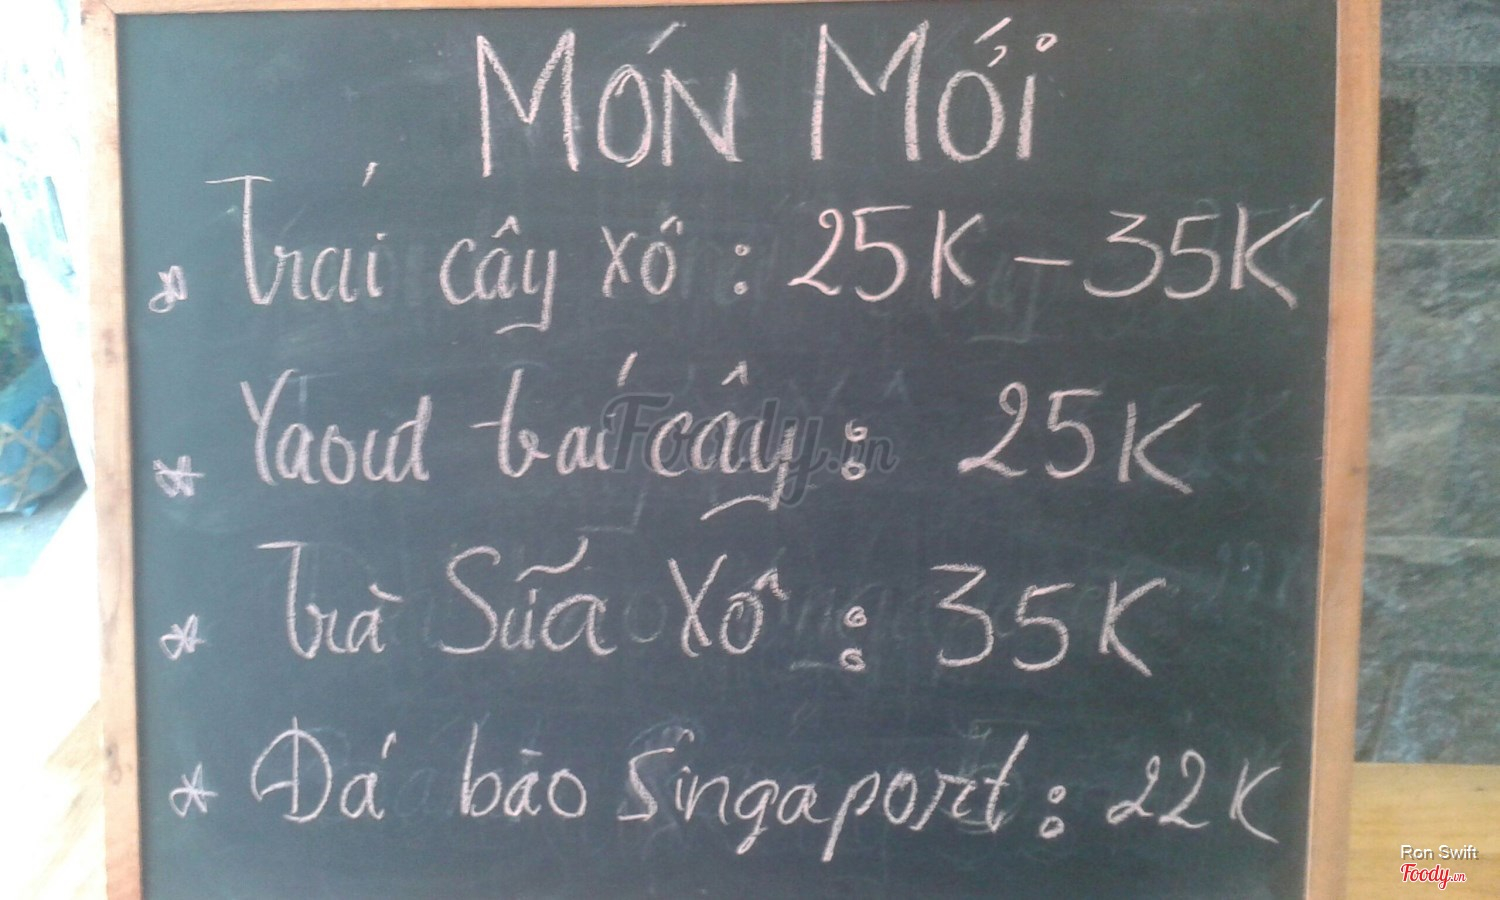 MÓN MỚI
* Trái cây xô : 25K - 35K
* Yaout trái cây : 25K
* Trà Sữa Xô : 35K
* Đá bào Singaport : 22K
Foody.vn
Ron Swift
Foody.vn